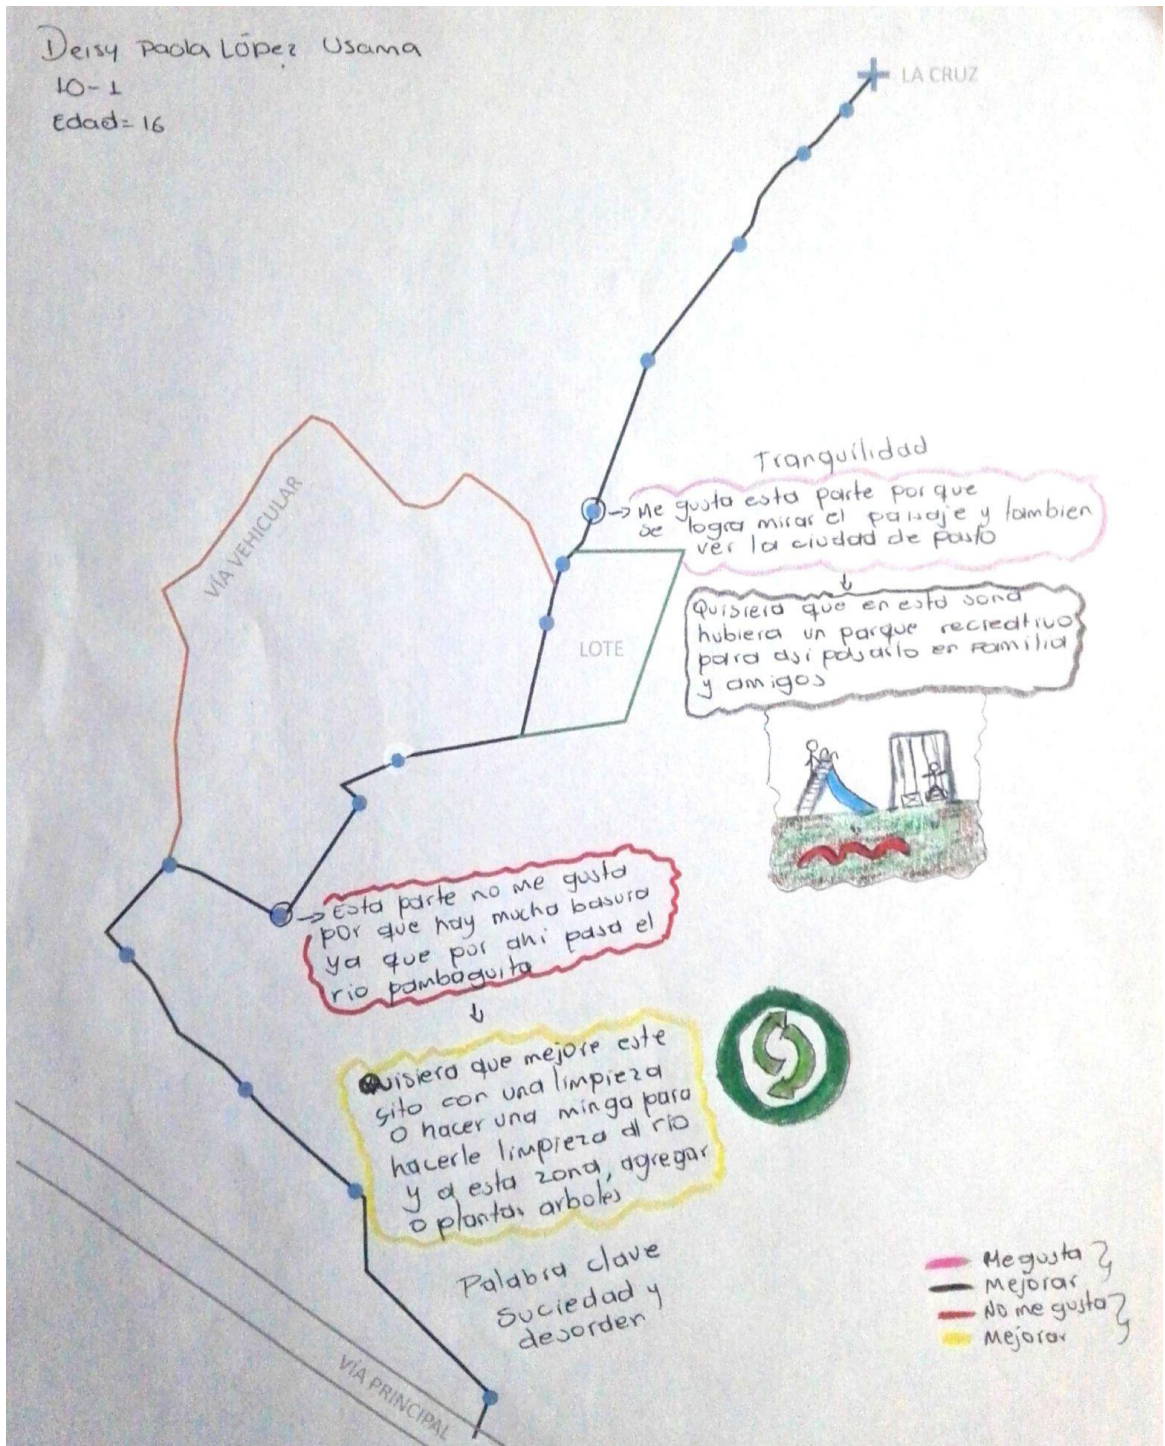 Deisy Paola López Usama
10-1
Edad=16
LA CRUZ
VÍA VEHICULAR
Tranquilidad
Me gusta esta parte por que
se logra mirar el paisaje y tambien
ver la ciudad de pasto
LOTE
Quisiera que en esta sona
hubiera un parque recreativo
para asi pasarlo en Familia
y amigos
Esta parte no me gusta
por que hay mucha basura
ya que por ahi pasa el
rio pambaguita
Quisiera que mejore este
sito con una limpieza
o hacer una minga para
hacerle limpieza al rio
y a esta zona, agregar
o plantas arboles
Palabra clave
Suciedad y
desorden
Me gusta
Mejorar
No me gusta
Mejorar
VÍA PRINCIPAL